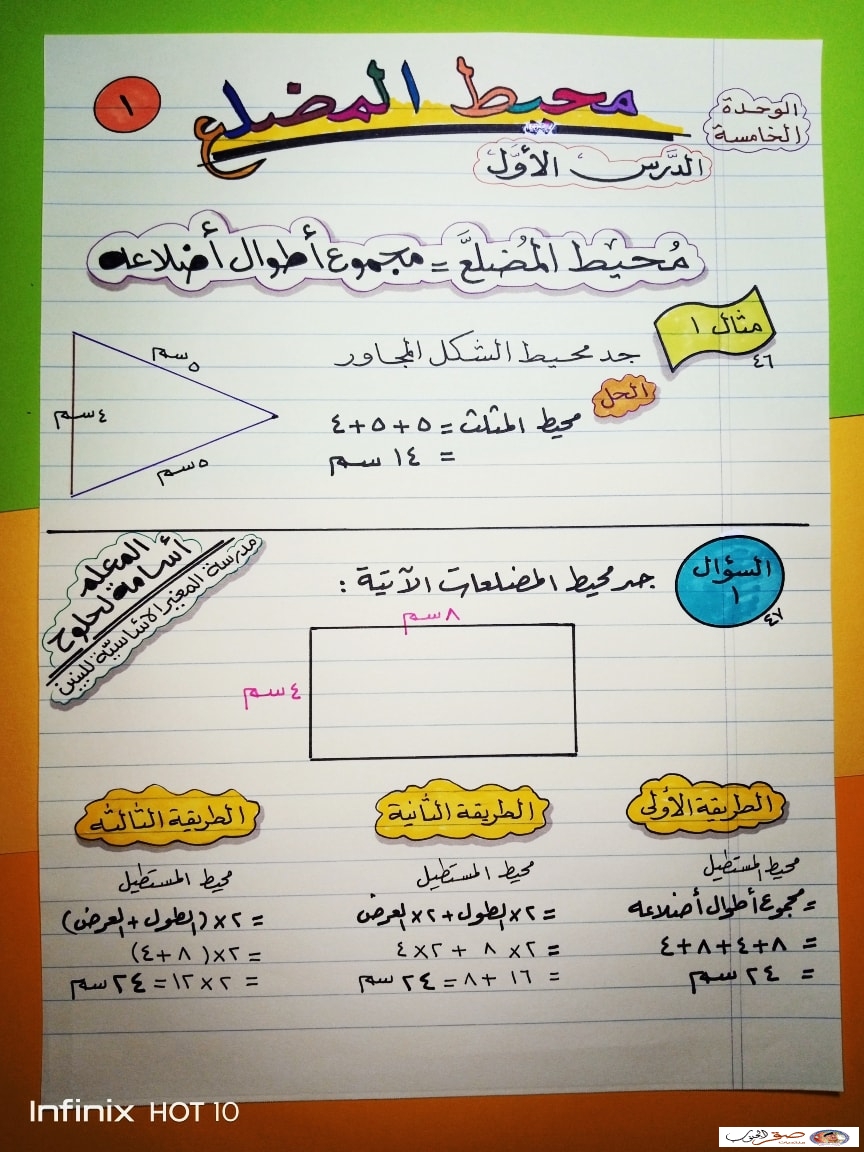 الوحدة
الخامسة
محيط المضلع
١
الدَّرس الأوَّل
مُحيط المُضلعَّ = مجموع أطوال أضلاعه
مثال ١
٤٦
جد محيط الشكل المجاور
الحل
محيط المثلث = ٥ + ٥ + ٤
= ١٤ سم
٥ سم
٤ سم
٥ سم
السؤال
١
٤٧
جد محيط المضلعات الآتية :
المعلم
أسامة لحلوح
مدرسة المغير الأساسيّة للبنين
٨ سم
٤ سم
الطريقة الأولى
محيط المستطيل
= مجموع أطوال أضلاعه
= ٨ + ٤ + ٨ + ٤
= ٢٤ سم
الطريقة الثانية
محيط المستطيل
= ٢ × الطول + ٢ × العرض
= ٢ × ٨ + ٢ × ٤
= ١٦ + ٨ = ٢٤ سم
الطريقة الثالثه
محيط المستطيل
= ٢ × (الطول + العرض)
= ٢ × (٨ + ٤)
= ٢ × ١٢ = ٢٤ سم
Infinix HOT 10
منتديات صقر الجنوب